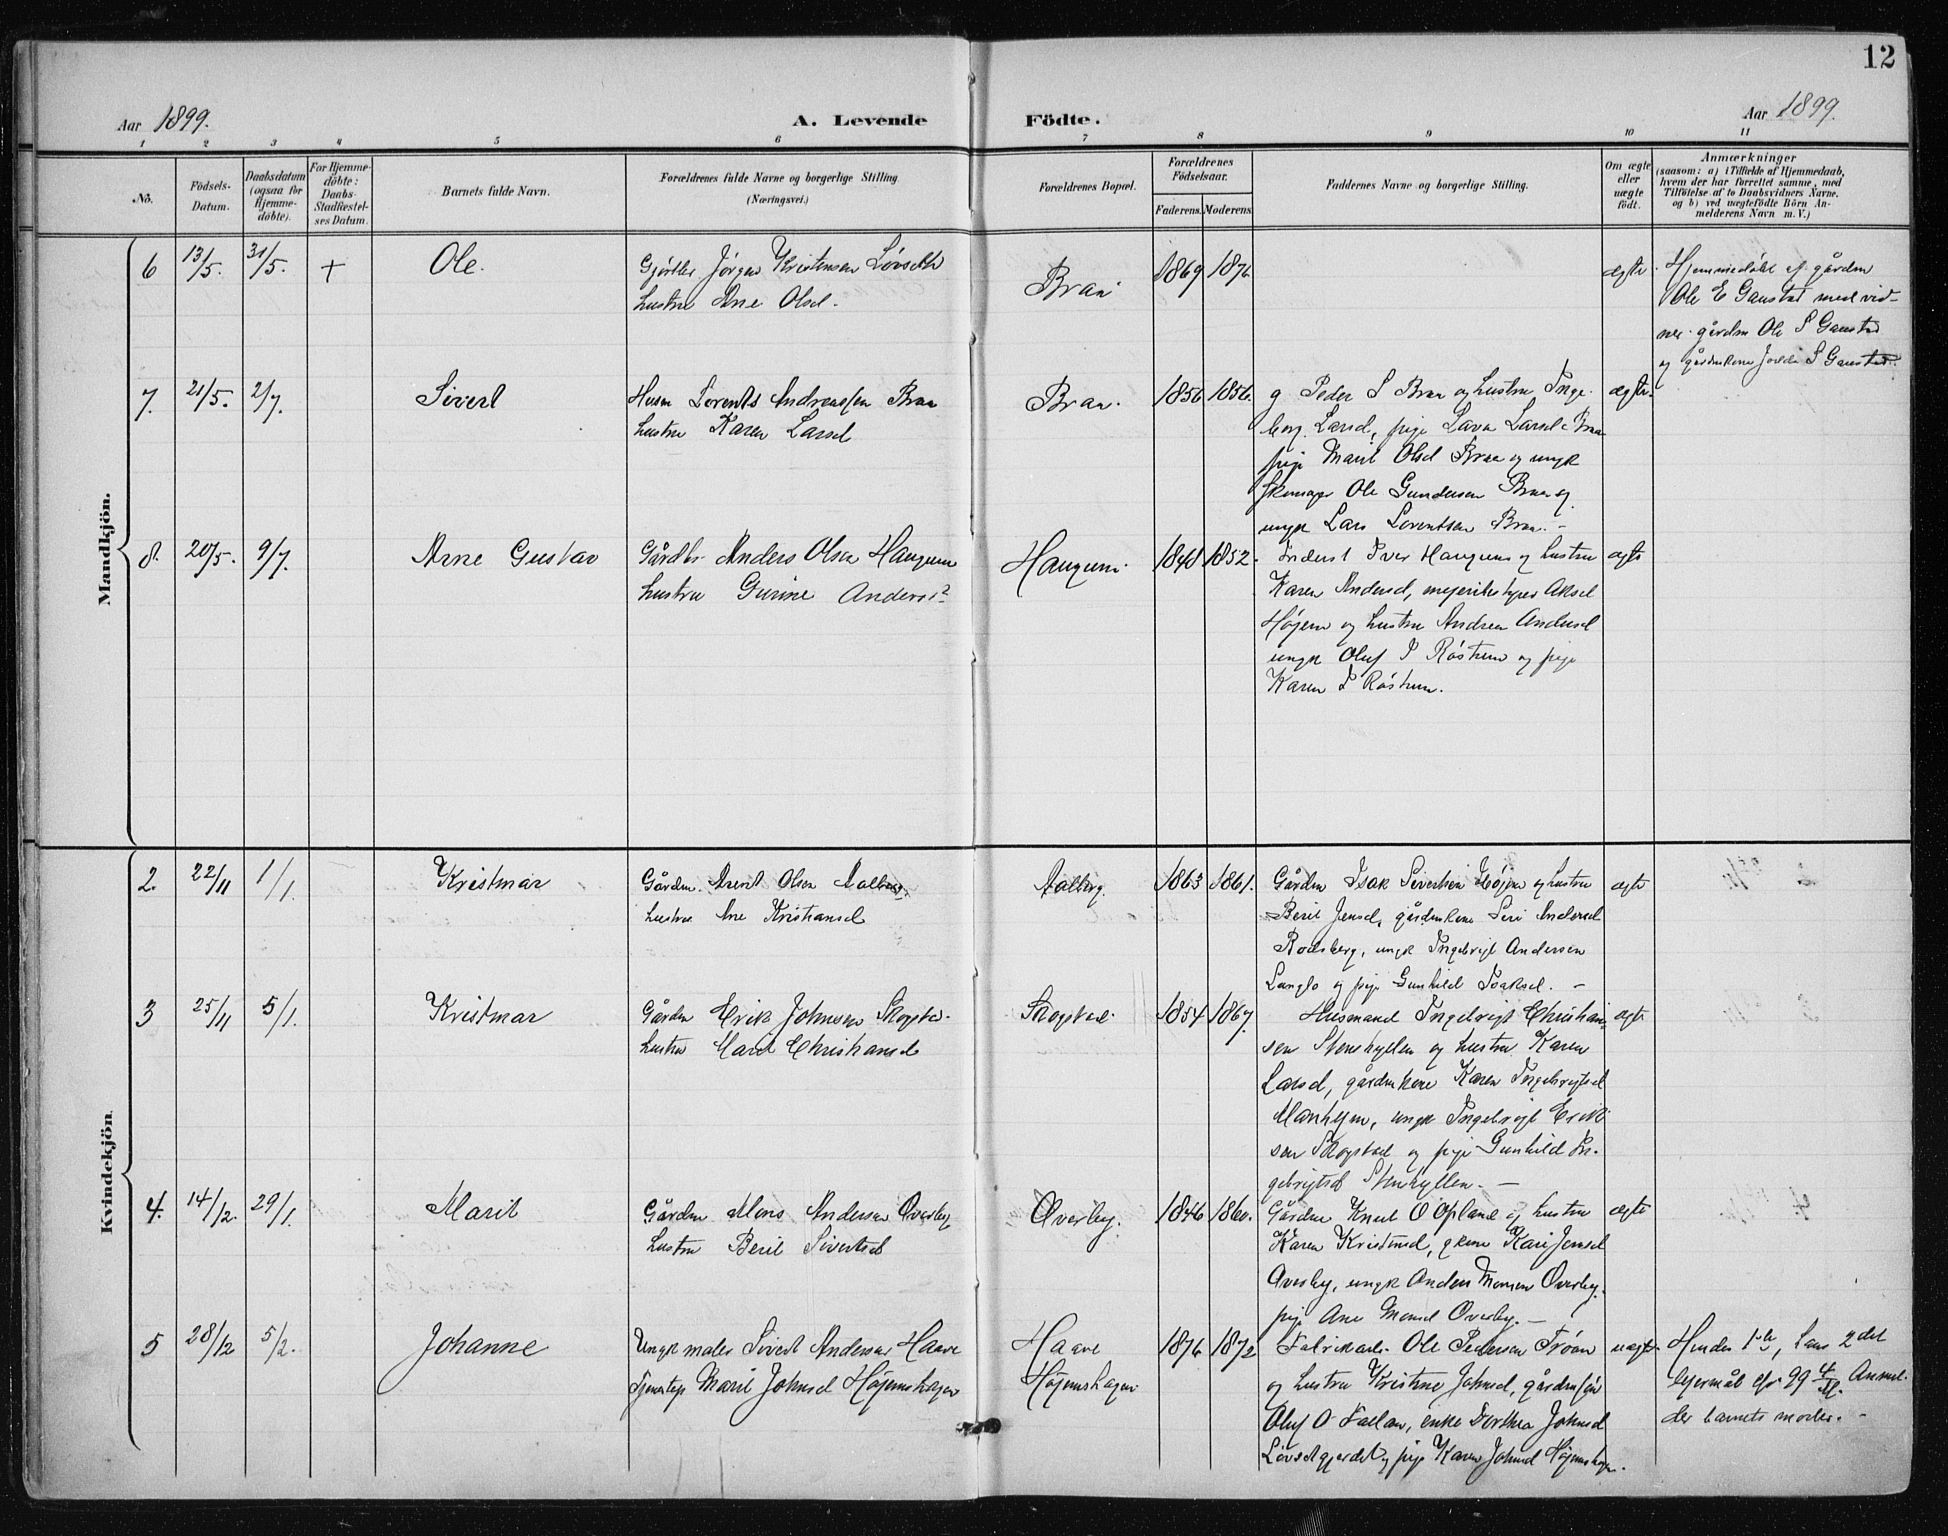 12
Aar 1899.
A. Levende Födte.
Aar 1899.
1 2 3 4 5 6 7 8 9 10 11
No.
Födsels-
Datum.
Daabsdatum
(ogsaa for
Hjemme-
döbte).
For Hjemme-
döbte:
Daabs-
Stadfæstel-
ses Datum.
Barnets fulde Navn.
Forældrenes fulde Navne og borgerlige Stilling
(Næringsvei.)
Forældrenes Bopæl.
Forældrenes
Födselsaar.
Faderens. Moderens.
Faddernes Navne og borgerlige Stilling.
Om ægte
eller
uægte
födt.
Anmærkninger
(saasom: a) i Tilfælde af Hjemmedaab,
hvem der har forrettet samme, med
Tilföielse af to Daabsvidners Navne,
og b) ved uægtefödte Börn An-
melderens Navn m. V.)
Mandkjön.
6 13/5. 31/5. + Ole. Jørgen Kristensen Løvseth
hustru Ane Olsd.
Braa 1869 1876 ægte.
Hjemmedøbt af gårdm
Ole E Gaustad med vid-
ner gårdm Ole S Gaustad
og gårdmkone S Gaustad.
7. 21/5. 2/7. Sivert Husm Lorents Andreassen Braa
hustru Karen Larsd
Braa. 1856 1856. g Peder S Braa og hustru Inge-
borg Larsd, pige Larsd Braa
pige Marit Olsd Braa og ungk
skomager Ole Gundersen Braa og
ungk Lars Lorentsen Braa. -
ægte.
8. 20/5. 9/7. Arne Gustav Gårdbr Anders Olsen Haugum
hustru Gurine Andersd
Haugum. 1848 1852. Inderst Iver Haugum og hustru
Karen Andersd, meieribestyrer Aksel
Højem og hustru Andrea Andersd
ungk Oluf I Røstum og pige
Karen I Røstum.
ægte
Kvindekjön.
2. 22/11 1/1. Kristmar Gårdm. Arent Olsen Aalberg.
hustru Ane Kristiansd
Aalberg. 1863 1861. Gårdm Isak Sivertsen Højem og hustru
Berit Jensd, gårdmkone Siri Andersd
Rodsberg, ungk Ingebrigt Andersen
Langlo og pige Gunhild Isaksd. -
ægte
3 25/11 5/1. Kristmar Gårdm Erik Johnsen Skogstad.
hustru Marit Christiansd
Skogstad. 1854 1867. Husmand Ingebrigt Christian-
sen Stenhyllen og hustru Karen
Larsd, gårdmkone Karen Ingebrigtsd
ungk Ingebrigt Erik-
sen Skogstad og pige Gunhild In-
gebrigtsd Stenhyllen. -
ægte
4. 14/12. 29/1. Marit Gårdm Mons Andersen Øverby
hustru Berit Sivertsd
Øverby. 1846 1860. Gårdm Knut O Opland og hustru
Karen Kristensd, gkone Kari Jensd
Øverby, ungk Anders Monsen Øverby.
pige Ane Monsd Øverby. -
ægte
5 28/12 5/2. Johanne Ungk maler Sivert Andersen Haave
Tjenestep Marit Johnsd Højemshagen
Haave
Højemshagen
1876 1872 Fabrikarb. Ole Pedersen Trøan
og hustru Kristine Johnsd, gårdmsøn
Oluf O Fallan, enke Dorthea Johnsd
Løvsetgjerdet og pige Karen Johnsd Højemshagen.
uægte. Hendes 1ste, hans 2det
lejermål Anmel-
der barnets moder. -